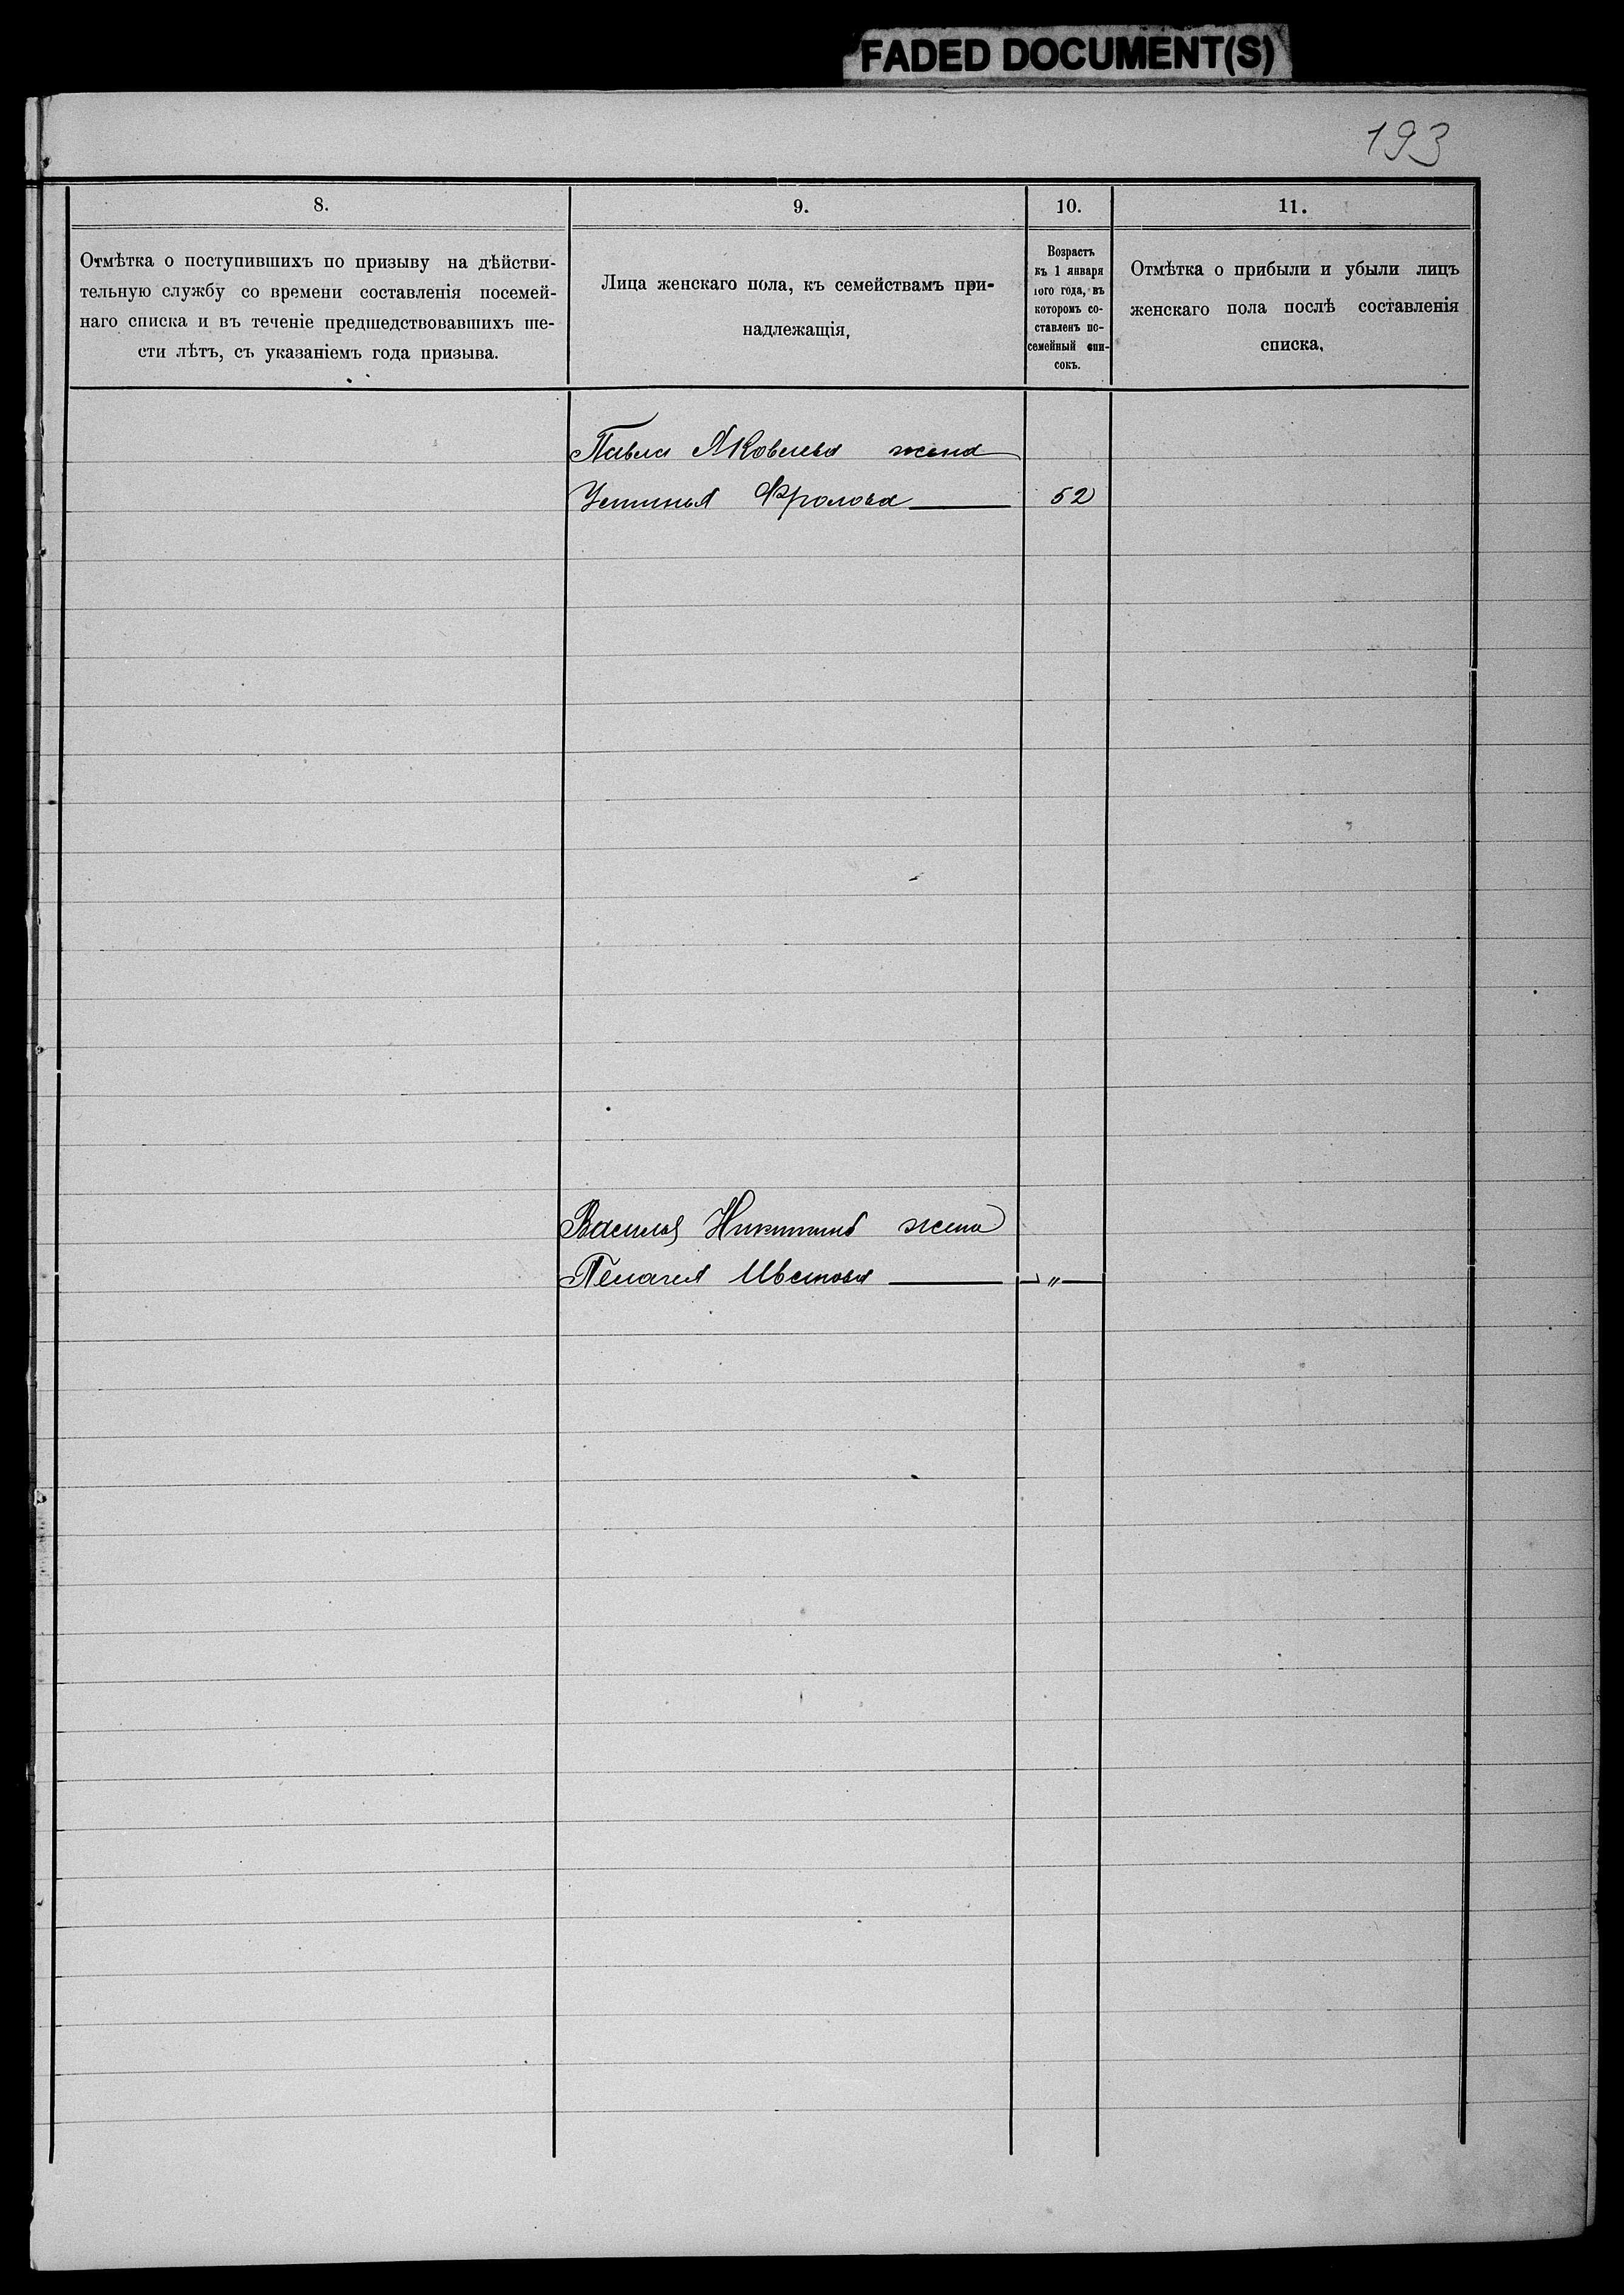 FADED DOCUMENT(S)
193
8.
Отмѣтка о поступившихъ по призыву на дѣйстви-
тельную службу со времени составленія посемей-
наго списка и въ теченіе предшедствовавшихъ ше-
сти лѣтъ, съ указаніемъ года призыва.
9.
Лица женскаго пола, къ семействамъ при-
надлежащія,
10.
Возрастъ
къ 1 января
того года, въ
которомъ со-
ставленъ по-
семейный спи-
сокъ.
11.
Отмѣтка о прибыли и убыли лицъ
женскаго пола послѣ составленія
списка,
Павла Яковлева жена
Устинья Фролова 52
Василья Никитина жена
Пелагея Ивстова „